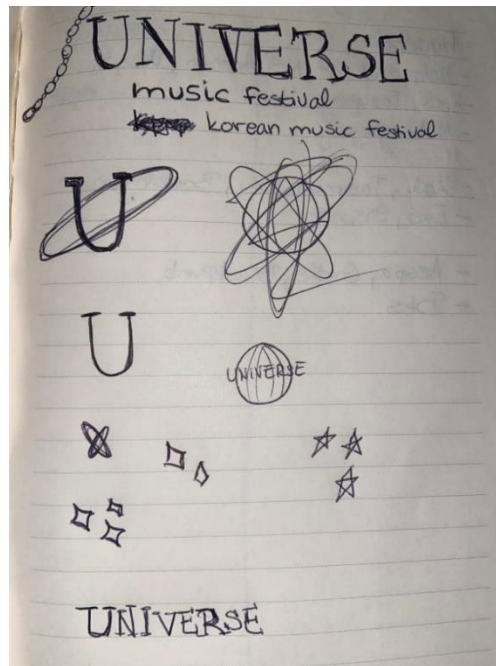 UNIVERSE
music festival
korean music festival
U
U
UNIVERSE
UNIVERSE